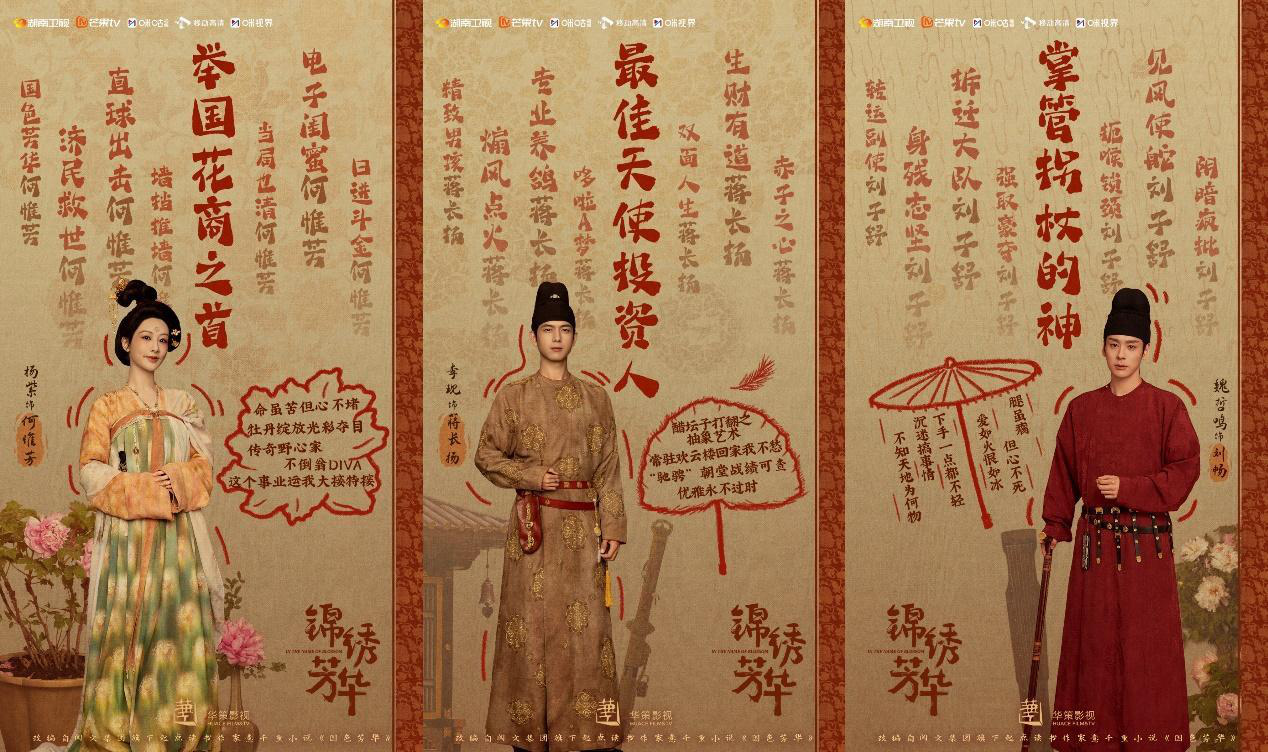 湖南卫视 芒果TV 咪咕视频 移动高清 咪视界
国色芳华何惟芳
济民救世何惟芳
直球出击何惟芳
墙挡推墙何
举国花商之首
当局也清何惟芳
电子闺蜜何惟芳
日进斗金何惟芳
杨紫 饰 何惟芳
命虽苦但心不堵
牡丹绽放光彩夺目
传奇野心家
不倒翁DIVA
这个事业运我大接特接
锦绣芳华
IN THE NAME OF BLOSSOM
华策影视
HUACE FILM&TV
改编自阅文集团旗下起点读书作家意千重小说《国色芳华》
湖南卫视 芒果TV 咪咕视频 移动高清 咪视界
精致男孩蒋长扬
煽风点火蒋长扬
专业养鸽蒋长扬
哆啦A梦蒋长扬
最佳天使投资人
双面人生蒋长扬
生财有道蒋长扬
赤子之心蒋长扬
李现 饰 蒋长扬
醋坛子打翻之
抽象艺术
常驻欢云楼回家我不愁
“驰骋”朝堂战绩可查
优雅永不过时
锦绣芳华
IN THE NAME OF BLOSSOM
华策影视
HUACE FILM&TV
改编自阅文集团旗下起点读书作家意千重小说《国色芳华》
湖南卫视 芒果TV 咪咕视频 移动高清 咪视界
转运副使刘子舒
身残志坚刘子舒
拆迁大队刘子舒
强取豪夺刘子舒
掌管拐杖的神
扼喉锁颈刘子舒
见风使舵刘子舒
阴暗疯批刘子舒
魏哲鸣 饰 刘畅
腿虽瘸 但心不死
爱如火恨如冰
下手一点都不轻
沉迷搞事情
不知天地为何物
锦绣芳华
IN THE NAME OF BLOSSOM
华策影视
HUACE FILM&TV
改编自阅文集团旗下起点读书作家意千重小说《国色芳华》